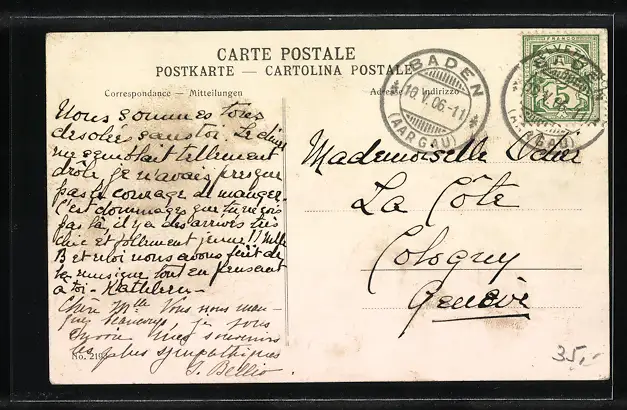 CARTE POSTALE
POSTKARTE — CARTOLINA POSTALE
Correspondance — Mitteilungen
Adresse Indirizzo
BADEN
10.V.06-11
(AARGAU)
HELVETIA
FRANCO
5
BADEN
(AARGAU)
Nous sommes tous
desolés sans toi. Le diner
me semblait tellement
drôle, je n'avais presque
pas le courage de manger.
C'est dommage que tu ne sois
pas là, il y a des arrivés très
chic et follement jeune!! Melle
B et moi nous avons fait de
la musique tout en pensant
à toi - Kathleen -
Chère Mlle Vous nous man-
quez beaucoup, je vous
envoie mes souvenirs
les plus sympathiques
J. Bellio
No. 219
Mademoiselle Odier
La Côte
Cologny
Genève
35,-